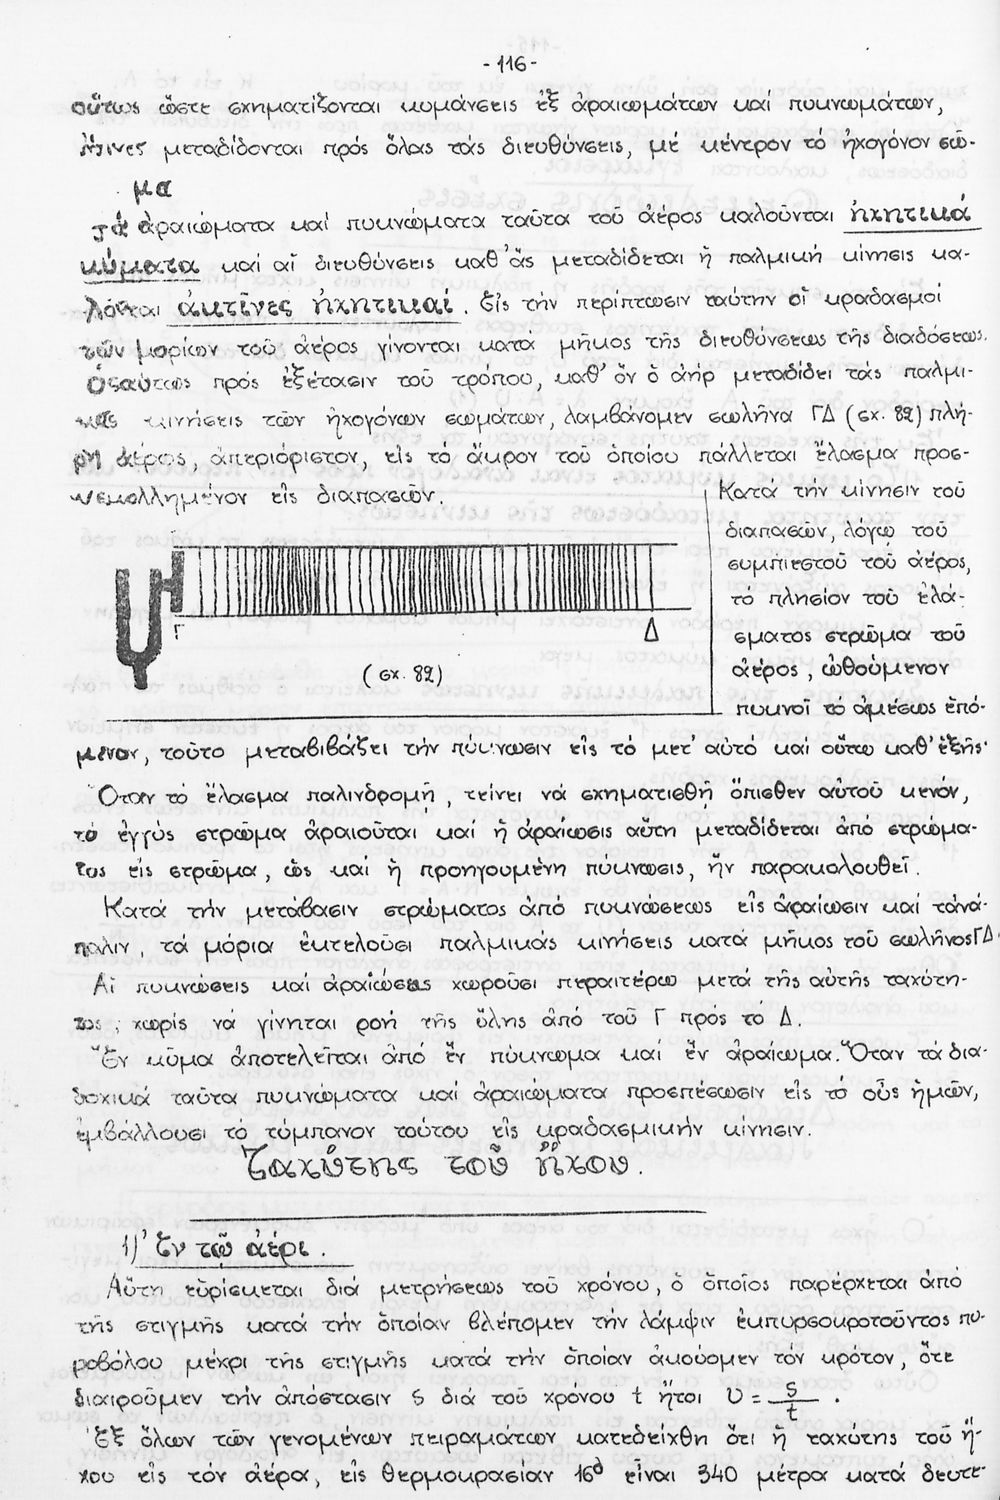 -116-
οὕτως ὥστε σχηματίζονται κυμάνσεις ἐξ ἀραιωμάτων καί πυκνωμάτων,
ἥτινες μεταδίδονται πρός ὅλας τάς διευθύνσεις, μέ κέντρον τό ἠχογόνον σῶ-
μα
τά ἀραιώματα καί πυκνώματα ταῦτα τοῦ ἀέρος καλοῦνται ἠχητικά
κύματα καί αἱ διευθύνσεις καθ' ἅς μεταδίδεται ἡ παλμική κίνησις κα-
λοῦνται ἀκτῖνες ἠχητικαί. Εἰς τήν περίπτωσιν ταύτην οἱ κραδασμοί
τῶν μορίων τοῦ ἀέρος γίνονται κατά μῆκος τῆς διευθύνσεως τῆς διαδόσεως.
Ὡσαύτως πρός ἐξέτασιν τοῦ τρόπου, καθ' ὅν ὁ ἀήρ μεταδίδει τάς παλμι-
κάς κινήσεις τῶν ἠχογόνων σωμάτων, λαμβάνομεν σωλῆνα ΓΔ (σχ. 82) πλή-
ρη ἀέρος, ἀπεριόριστον, εἰς τό ἄκρον τοῦ ὁποίου πάλλεται ἔλασμα προσ-
κεκολλημένον εἰς διαπασῶν.
Κατά τήν κίνησιν τοῦ
διαπασῶν, λόγῳ τοῦ
συμπιεστοῦ τοῦ ἀέρος,
τό πλησίον τοῦ ἐλά-
σματος στρῶμα τοῦ
ἀέρος, ὠθούμενον
πυκνοῖ τό ἀμέσως ἑπό-
Γ
Δ
(σχ. 82)
μενον, τοῦτο μεταβιβάζει τήν πύκνωσιν εἰς τό μετ' αὐτό καί οὕτω καθ' ἑξῆς.
Ὅταν τό ἔλασμα παλινδρομῇ, τείνει νά σχηματισθῇ ὄπισθεν αὐτοῦ κενόν,
τό ἐγγύς στρῶμα ἀραιοῦται καί ἡ ἀραίωσις αὕτη μεταδίδεται ἀπό στρώμα-
τος εἰς στρῶμα, ὡς καί ἡ προηγουμένη πύκνωσις, ἥν παρακολουθεῖ.
Κατά τήν μετάβασιν στρώματος ἀπό πυκνώσεως εἰς ἀραίωσιν καί τἀνά-
παλιν, τά μόρια ἐκτελοῦσι παλμικάς κινήσεις κατά μῆκος τοῦ σωλῆνος ΓΔ.
Αἱ πυκνώσεις καί ἀραιώσεις χωροῦσι περαιτέρω μετά τῆς αὐτῆς ταχύτη-
τος, χωρίς νά γίνηται ροή τῆς ὕλης ἀπό τοῦ Γ πρός τό Δ.
Ἕν κῦμα ἀποτελεῖται ἀπό ἕν πύκνωμα καί ἕν ἀραίωμα. Ὅταν τά δια-
δοχικά ταῦτα πυκνώματα καί ἀραιώματα προσπέσωσιν εἰς τό οὖς ἡμῶν,
ἐμβάλλουσι τό τύμπανον τούτου εἰς κραδασμικήν κίνησιν.
Ταχύτης τοῦ ἤχου.
1) Ἐν τῷ ἀέρι.
Αὕτη εὑρίσκεται διά μετρήσεως τοῦ χρόνου, ὁ ὁποῖος παρέρχεται ἀπό
τῆς στιγμῆς κατά τήν ὁποίαν βλέπομεν τήν λάμψιν ἐκπυρσοκροτοῦντος πυ-
ροβόλου μέχρι τῆς στιγμῆς κατά τήν ὁποίαν ἀκούομεν τόν κρότον, ὅτε
διαιροῦμεν τήν ἀπόστασιν S διά τοῦ χρόνου t ἤτοι υ = S/t .
Ἐξ ὅλων τῶν γενομένων πειραμάτων κατεδείχθη ὅτι ἡ ταχύτης τοῦ ἤ-
χου εἰς τόν ἀέρα, εἰς θερμοκρασίαν 16° εἶναι 340 μέτρα κατά δευτε-